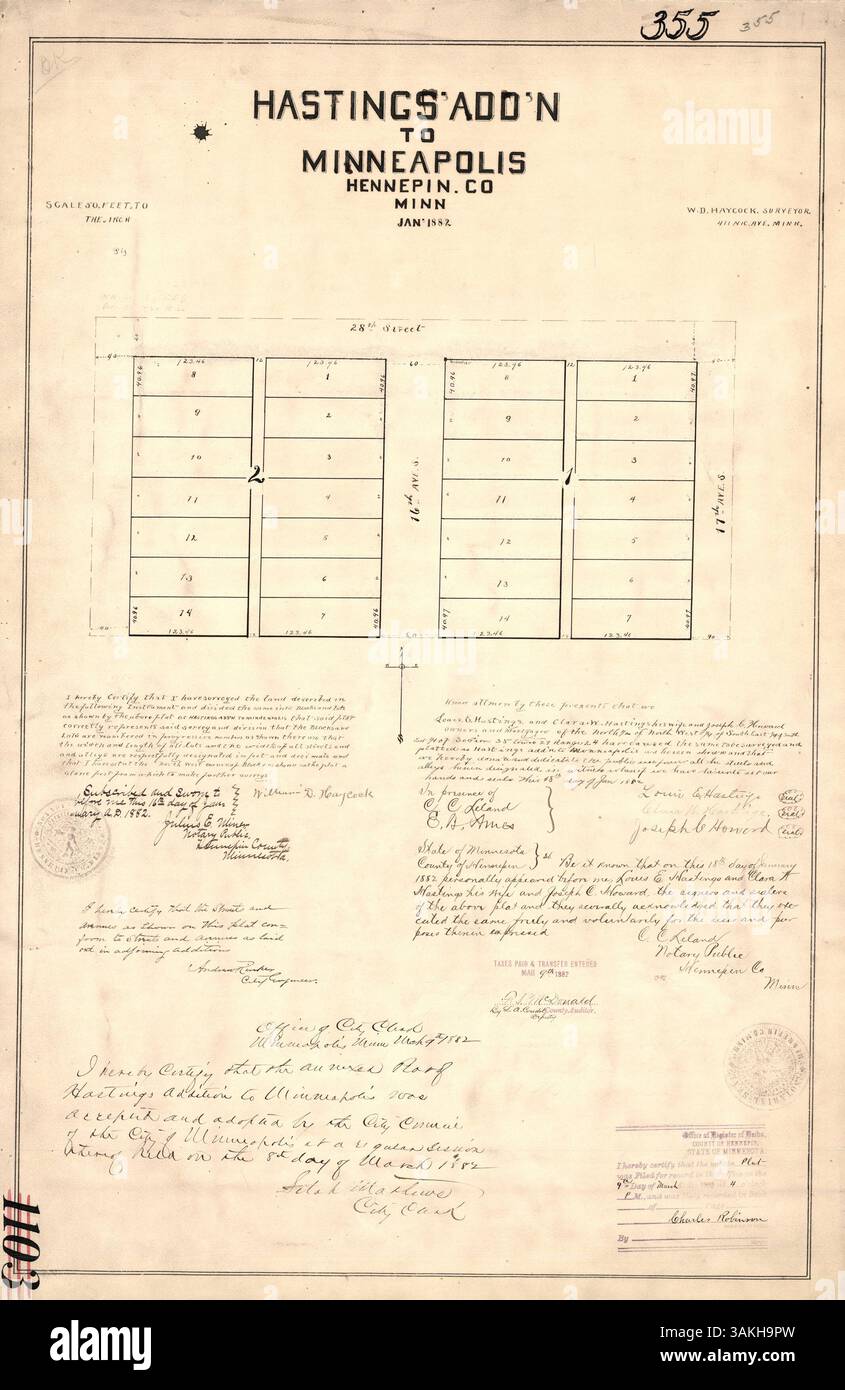 355 355
HASTINGS' ADD'N
TO
MINNEAPOLIS
HENNEPIN. CO
MINN
JAN' 1882
SCALE 50, FEET, TO
THE, INCH
W. D. HAYCOCK, SURVEYOR,
411 NIC. AVE, MINN.
28th Street
40 123.46 12 123.46 60 123.46 12 123.46 40
40.96 40.96 40.96 40.97
8 1 8 1
9 2 9 2
10 3 10 3
2 1
11 4 11 4
16th AVE. S.
17th AVE S.
12 5 12 5
13 6 13 6
14 7 14 7
40.96 40.96 40.97 40.97
40 123.46 123.46 60 123.46 123.46 40
I hereby Certify, that I have surveyed the land described in
the following Instrument and divided the same into Blocks and Lots
as shown by the above plat as HASTINGS ADD'N TO MINNEAPOLIS that said plat
correctly represents said survey and division that the Blocks and
Lots are numbered in progressive numbers as shown thereon that
the width and length of all lots and the width of all streets and
and alleys are respectfully designated in feet and decimals and
that I have set at the
stone post from which to make further surveys
Subscribed and Sworn to
before me this 16th day of Jan-
uary A.D. 1882.
Julius E. Miner
Notary Public,
Hennepin County,
Minnesota.
William D. Haycock
I hereby certify that the Streets and
avenues as shown on this plat con-
form to Streets and Avenues as laid
out in adjoining additions
Andrew Rinker
City Engineer.
Know all men by these presents that we
Louis E. Hastings and Clara W. Hastings his wife and Joseph C. Howard
owners and Mortgagee of the North
have caused the same to be surveyed and
platted as Hastings' add'n to Minneapolis as hereon shown and that
we hereby donate and dedicate to the public use forever all the streets and
alleys hereon designated in witness whereof we have hereunto set our
hands and seals this 18th day of Jan 1882
In presence of
C. C. Leland
E. A. Ames
Louis E Hastings
Joseph C Howard
State of Minnesota
County of Hennepin } ss Be it known that on this 18th day of January
1882 personally appeared before me, Louis E. Hastings and Clara W
Hastings his wife and Joseph C. Howard, the signers and sealers
of the above plat and they severally acknowledged that they exe-
cuted the same freely and voluntarily for the uses and pur-
poses therein expressed
C. C. Leland
Notary Public
Hennepin Co
Minn
TAXES PAID & TRANSFER ENTERED
MAR 9th 1882
County Auditor.
Deputy
Office of City Clerk
Minneapolis Minn Mch 9th 1882
I hereby Certify that the annexed Plat of
Hastings Addition to Minneapolis was
accepted and adopted by the City Council
of the City of Minneapolis at a regular Session
thereof held on the 8th day of March 1882
Selah Matthews
City Clerk
Office of Register of Deeds,
COUNTY OF HENNEPIN,
STATE OF MINNESOTA
I hereby certify that the within Plat
was filed for record in this office on the
9th Day of March
P M., and was duly recorded in Book
Charles Robinson
By
1103
alamy
Image ID: 3AKH9PW
www.alamy.com